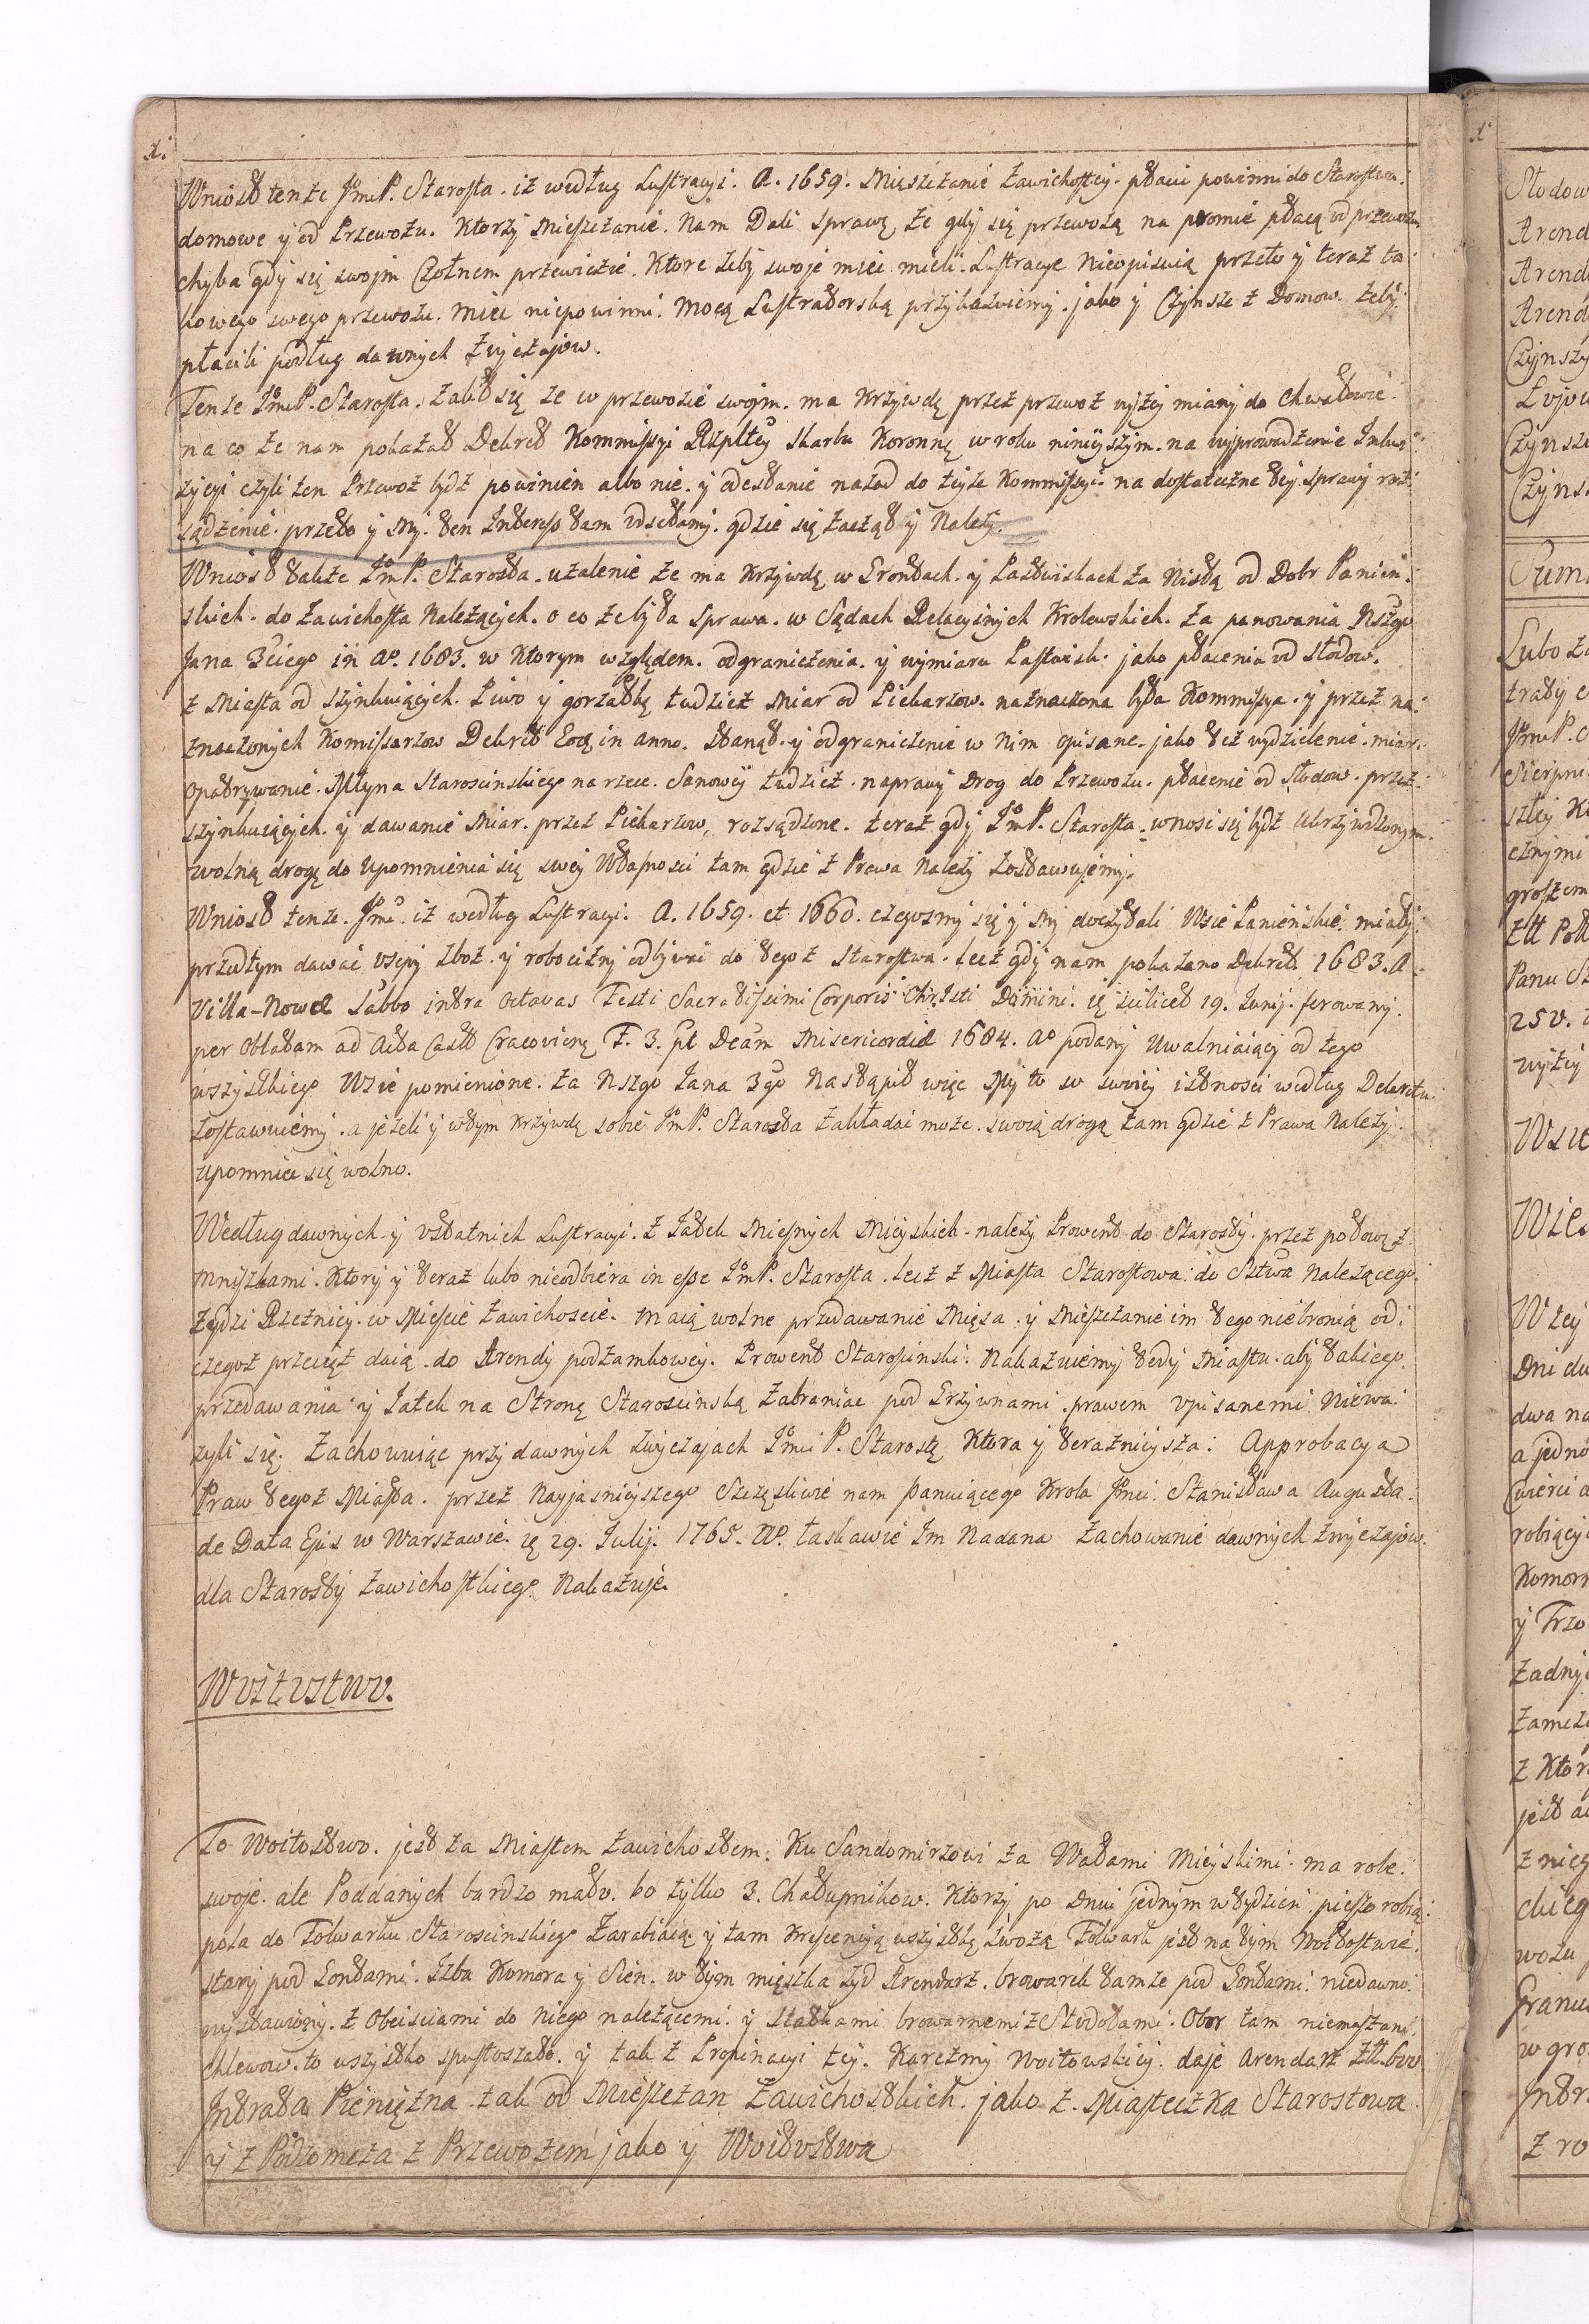 Wniosł tenże JmP. Starosta. iż według Lustracyi. A. 1659. Mieszczanie Zawichostcy. płacić powinni do Starostwa.
domowe y od Przewozu. Ktorzy Mieszczanie. Nam Dali sprawę, że gdy się przewożą na promie płacą od przewozu
chyba gdy się swojm Czołnem przewiezie. Ktore żeby swoje mieć mieli. Lustracye nieopisuią przeto y teraz ta-
kowego swego przewozu. mieć niepowinni. Mocą Lustratorską przykazuiemy. jako y Czynsze z Domow. żeby
płacili podług dawnych zwyczajow.
Tenże JmP. Starosta. żalił się że w przewozie swojm. ma Krzywdę przez przewoz wyżey miany do Chwałowic
na co że nam pokazał Dekret Kommissyi Rzpltey Skarbu Koronnę w roku ninieyszym. na wyprowadzenie Inkwi-
zycyi czyli ten Przewoz bydź powinien albo nie. y odesłanie nazad do teyże Kommissyi. na dostateczne tey sprawy roz-
sądzenie. przeto y My. ten Interess tam odsełamy. gdzie się zaczął y Należy.
Wniosł także JmP. Starosta. użalenie że ma Krzywdę w Grontach. y Pastwiskach za Wisłą od Dobr Panień-
skich. do Zawichosta Należących. o co że była sprawa. w Sądach Relacyinych Krolewskich. za panowania Nszgo
Jana 3ciego in Ao. 1683. w Ktorym względem. odgraniczenia. y wymiaru Pastwisk. jako płacenia od słodow.
z Miasta od szynkuiących. Piwo y gorzałkę tudzież Miar od Piekarzow. naznaczona była Kommissya. y przez na-
znaczonych Komissarzow Dekret Eoq in anno. stanął. y odgraniczenie w nim opisane. jako też wydzielenie. miar.
opatrywanie. Młyna Starościnskiego na rzece. Sanowey tudzież. naprawy Drog do Przewozu. płacenie od słodow. przez
szynkuiących. y dawanie Miar. przez Piekarzow, rozsądzone. teraz gdy JmP. Starosta. wnosi się bydź ukrzywdzonym
wolną drogę do upomnienia się swey własności tam gdzie z Prawa Należy Zostawujemy.
Wniosł tenże. Jmć. iż według Lustracyi. A. 1659. et 1660. czegosmy się y My doczytali Wsie Panieńskie. miały
przedtym dawać vsepy zboż. y robocizny odbywać do tegoż Starostwa. lecz gdy nam pokazano Dekret 1683. A
Villa-Novæ Sabbo intra Octavas Festi Sacratissimi Corporis Christi Domini. ię scilicet 19. Junij. ferowany.
per Oblatam ad Acta Castr Cracovienę F. 3. pt Deam Misericordiæ 1684. Ao podany Uwalniaiący od tego
wszystkiego Wsie pomienione. za Nszgo Jana 3go Nastąpił więc My to w swoiey istności według Dekretu
Zostawuiemy. a jeżeli y wtym krzywdę sobie JmP. Starosta zakładać może. swoią drogą tam gdzie z Prawa Należy
upomnieć się wolno.
Według dawnych y vstatnich Lustracyi. z Jatek Miesnych Mieyskich należy Prowent do Starosty. przez połowę z
mniszkami. Ktory y teraz lubo nieodbiera in esse JmP. Starosta. lecz z Miasta Starostowa. do Sztwa należącego
Żydzi Rzeźnicy. w Mieście Zawichoście. maią wolne przedawanie Mięsa. y Mieszczanie im tego niebronią od
czegoż przecięż daią. do Arendy podzamkowey. Prowent Starościnski. Nakazuiemy tedy Miastu. aby takiego
przedawania y Jatek na Stronę Starościnską zabraniać pod Grzywnami prawem vpisanemi niewa-
żyli się. Zachowuiąc przy dawnych zwyczajach Jmci P. Starostę Ktora y teraznieysza. Approbacya
Praw tegoż Miasta. przez Nayjaśnieyszego Szczęśliwie nam panuiącego Krola Jmci. Stanisława Augusta.
de Data Ejus w Warszawie. ię 29. Julij. 1765. Ao. łaskawie Im Nadana Zachowanie dawnych zwyczajow.
dla Starosty Zawichostkiego Nakazuje.
Wvitvstwv.
To Woitostwo. jest za Miastem Zawichostem. Ku Sandomirzowi za Wałami Mieyskimi. ma role.
swoje. ale Poddanych bardzo małv. bo tylko 3. Chałupnikow. Ktorzy po Dniu jednym w tydzień pieszo robią.
pola do Folwarku Starościnskiego Zarabiaią y tam Krescencyą wszystkę zwożą Folwark jest na tym Woitostwie.
stary pod Gontami. Izba Komora y Sień. w tym mięszka żyd Arendarz. browarek tamże pod Gontami. niedawno
wystawiony. z Obeisciami do niego należącemi. y statkami browarnemi z Stodołami. Obor tam niemasz ani
Chlewow. to wszystko spustoszało. y tak z Propinacyi tey. Karczmy Woitowskiey. daje Arendarz Złł. 600
Intrata Pieniężna tak od Mieszczan Zawichostkich. jako z. Miasteczka Starostowa
y z Podzomcza z Przewozem jako y Woitvstwa